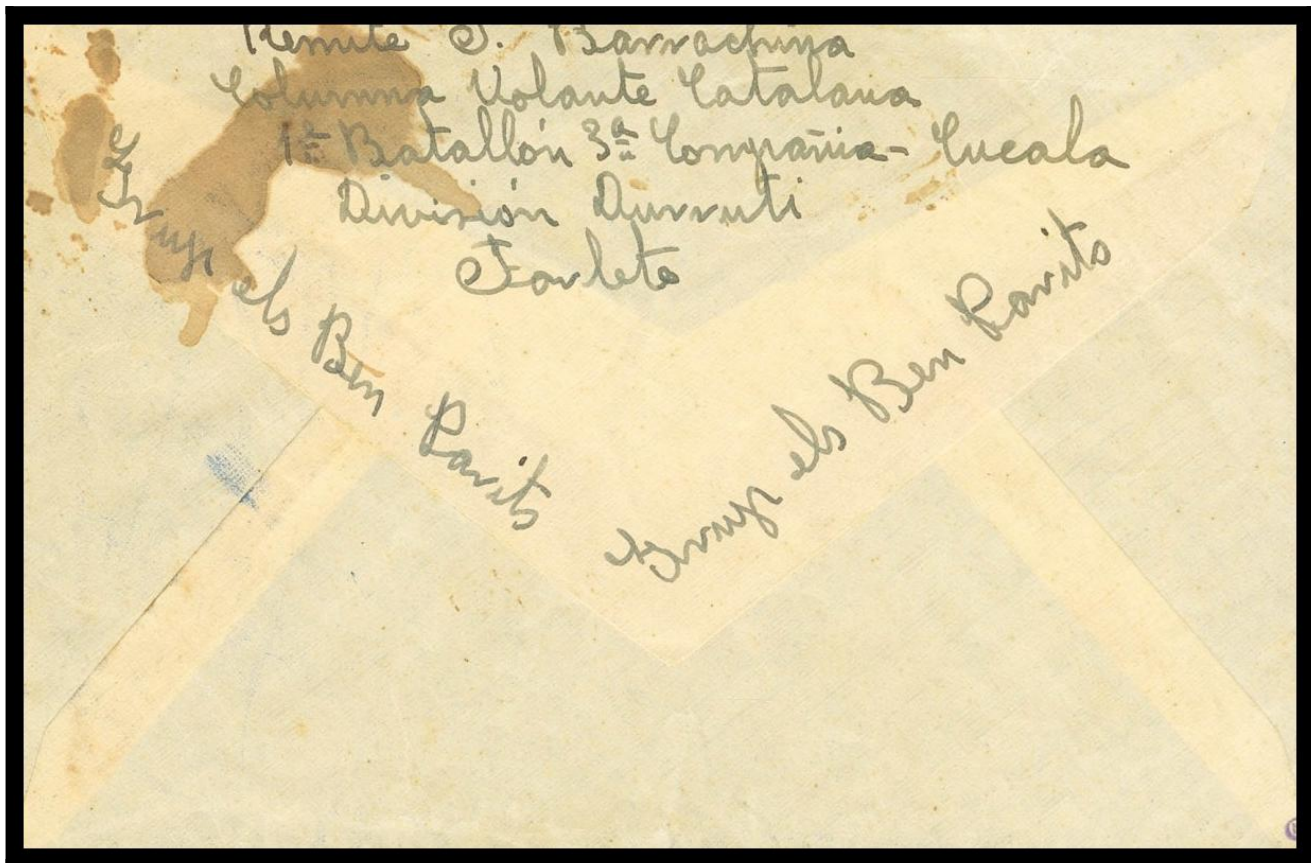 Remite J. Barrachina
Columna Volante Catalana
1er Batallón 3ª Compañia - Cucala
División Durruti
Farlete
Grup els Ben Parits
Grup els Ben Parits